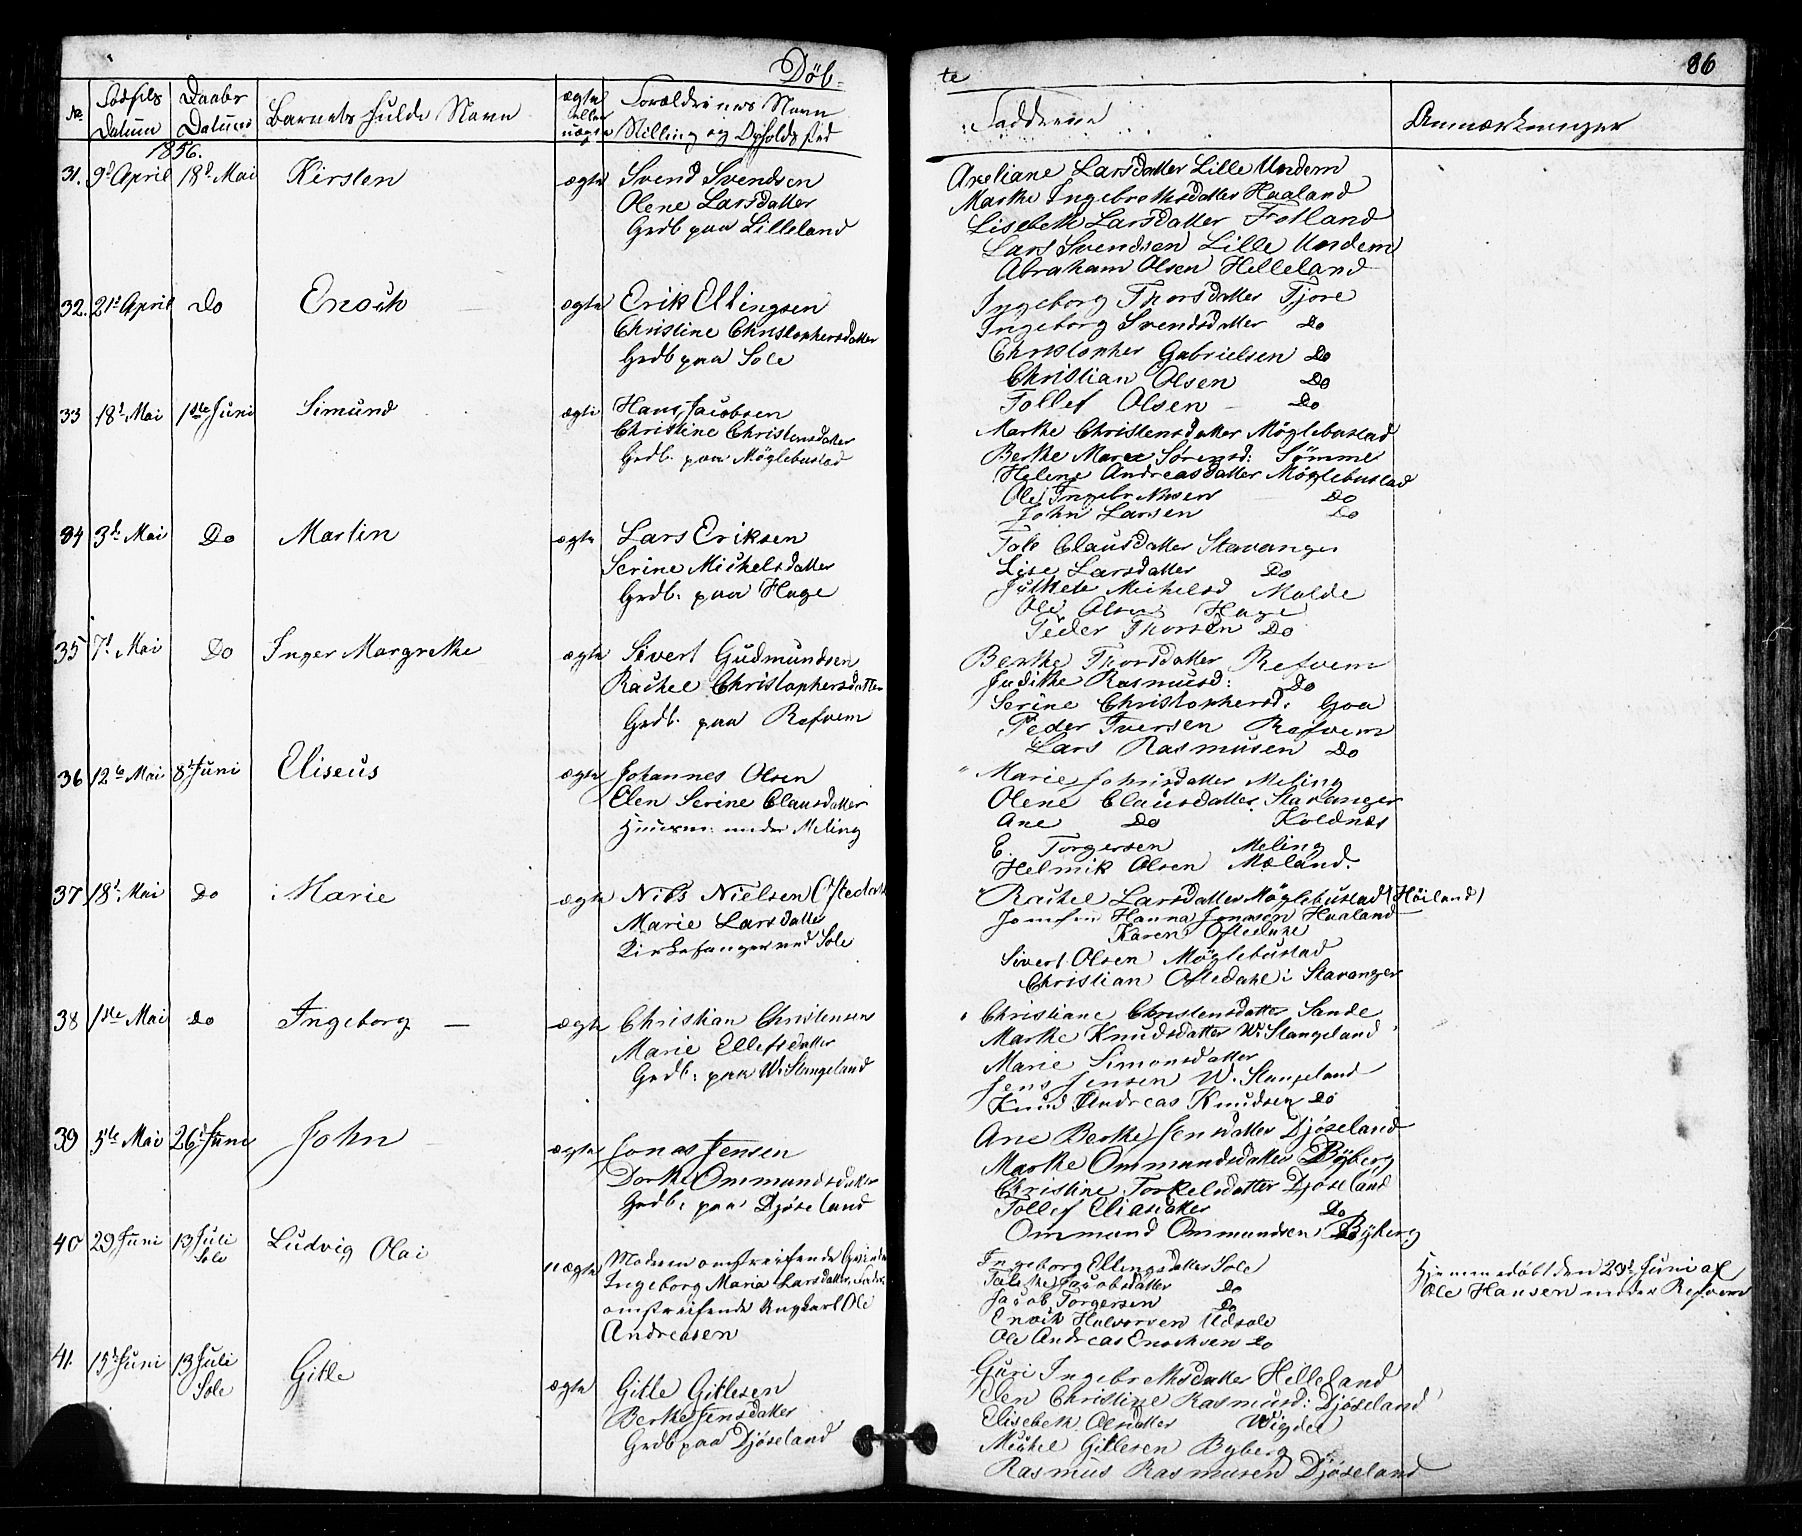 Döb-
te
86
№
Fødsels
Datum
Daabs
Datum
Barnets fulde Navn
ægte
eller
uægte
Forældrenes Navn
Stilling og Opholdssted
Fadderne
Anmærkninger
1856.
31. 9d April 18d Mai Kirsten ægte Svend Svendsen
Olene Larsdatter
Grdb paa Lilleland
Axeliane Larsdatter Lille Undem
Marthe Ingebrethsdatter Haaland
Lisebeth Larsdatter Fotland
Lars Svendsen Lille Undem
Abraham Olsen Helleland
32. 21d April Do Enoch ægte Erik Ellingsen
Christine Christophersdatter
Grdb paa Sole
Ingeborg Thorsdatter Tjore
Ingeborg Svendsdatter Do
Christopher Gabrielsen Do
Christian Olsen Do
Tollef Olsen Do
33 18d Mai 1ste Juni Simund ægte Hans Jacobsen
Christine Christensdatter
Grdb. paa Möglebustad
Marthe Christensdatter Möglebustad
Berthe Marie Sørensd: Sömme
Helene Andreasdatter Möglebustad
Ole Ingebrethsen Do
John Larsen Do
34 3d Mai Do Martin ægte Lars Eriksen
Serine Michelsdatter
Grdb. paa Hage
Tale Clausdatter Stavanger
Lise Larsdatter Do
Michelsd Malde
Ole Olsen Hage
Peder Thorsen Do
35 7d Mai Do Inger Margrethe ægte Sivert Gudmundsen
Rachel Christophersdatter
Grdb. paa Refvem
Berthe Thorsdatter Refvem
Judithe Rasmusd: Do
Serine Christophersd. Goa
Peder Iversen Refvem
Lars Rasmusen Do
36 12te Mai 8d Juni Eliseus ægte Johannes Olsen
Elen Serine Clausdatter
Huusm. under Meling
Marie Johnsdatter Meling
Olene Clausdatter Stavanger
Ane Do Koldnæs
E. Torgersen Meling
Helmik Olsen Mæland.
37 18d Mai Do Marie ægte Nils Nielsen Oftedahl
Marie Larsdatter
Kirkesanger ved Sole
Rachel Larsdatter Möglebustad (Höiland)
Jomfru Hanna Jonasen Haaland
Karen Oftedahl
Sivert Olsen Möglebustad
Christian Oftedahl i Stavanger
38 1ste Mai Do Ingeborg ægte Christian Christensen
Marie Ellefsdatter
Grdb. paa W. Stangeland
Christiane Christensdatter Sande
Marthe Knudsdatter W. Stangeland
Marie Simonsdatter
Jens Jensen W. Stangeland
Knud Andreas Knudsen Do
39 5te Mai 26d Juni John ægte Jonas Jensen
Dorthe Ommundsdatter
Grdb. paa Djöseland
Ane Berthe Jensdatter Djöseland
Marthe Ommundsdatter Byberg
Christine Torkelsdatter Djöseland
Tollef Eliasdatter Do
Ommund Ommundsen Byberg
40 29 Juni 13 Juli
Sole
Ludvig Olai uægte Moderen omstreifende Qvinde
Ingeborg Maria Larsdatter,
omstreifende Ungkarl Ole
Andreasen
Ingeborg Ellingsdatter Sole
Jacobsdatter Do
Jacob Torgersen Do
Enoch Halvorsen Udsole
Ole Andreas Enochsen Do
Hjemmedøbt den 29d Juni af
Ole Hansen under Refvem
41. 15d Juni 13 Juli
Sole
Gitle ægte Gitle Gitlesen
Berthe Jensdatter
Grdb paa Djöseland
Guri Ingebrethsdatter Helleland
Elen Christine Rasmusd: Djöseland
Elisebeth Olsdatter Wigdel
Michel Gitlesen Byberg
Rasmus Rasmusen Djöseland